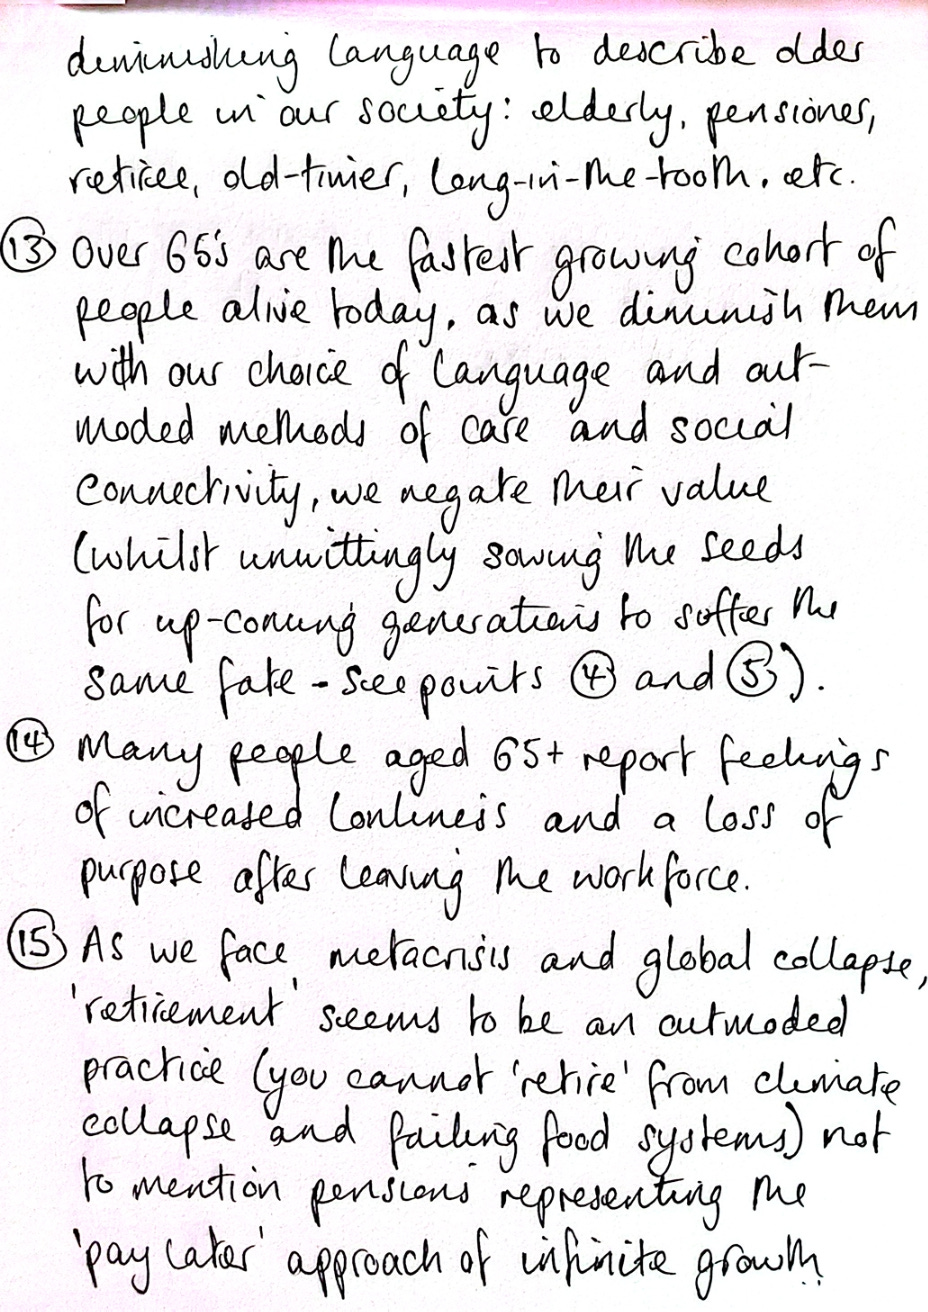 diminishing language to describe older
people in our society: elderly, pensioner,
retiree, old-timer, long-in-the-tooth, etc.
⑬ Over 65's are the fastest growing cohort of
people alive today, as we diminish them
with our choice of language and out-
moded methods of care and social
connectivity, we negate their value
(whilst unwittingly sowing the seeds
for up-coming generations to suffer the
same fate - see points ④ and ⑤).
⑭ Many people aged 65+ report feelings
of increased lonliness and a loss of
purpose after leaving the workforce.
⑮ As we face metacrisis and global collapse,
'retirement' seems to be an outmoded
practice (you cannot 'retire' from climate
collapse and failing food systems) not
to mention pensions representing the
'pay later' approach of infinite growth